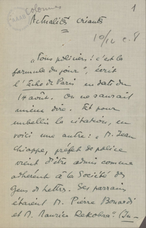 1
colonnes
Actualité criante
« Nous policier, : c'est la
formule du jour », écrit
l'Echo de Paris en date du
14 août. On ne saurait
mieux dire. Et pour
embellir la citation, en
voici une autre : « M. Jean
Chiappe, préfet de police
vient d'être admis comme
adhérent à la Société des
Gens de Lettres. Ses parrains
étaient M. Pierre Benoit et
M. Maurice Dekobra »